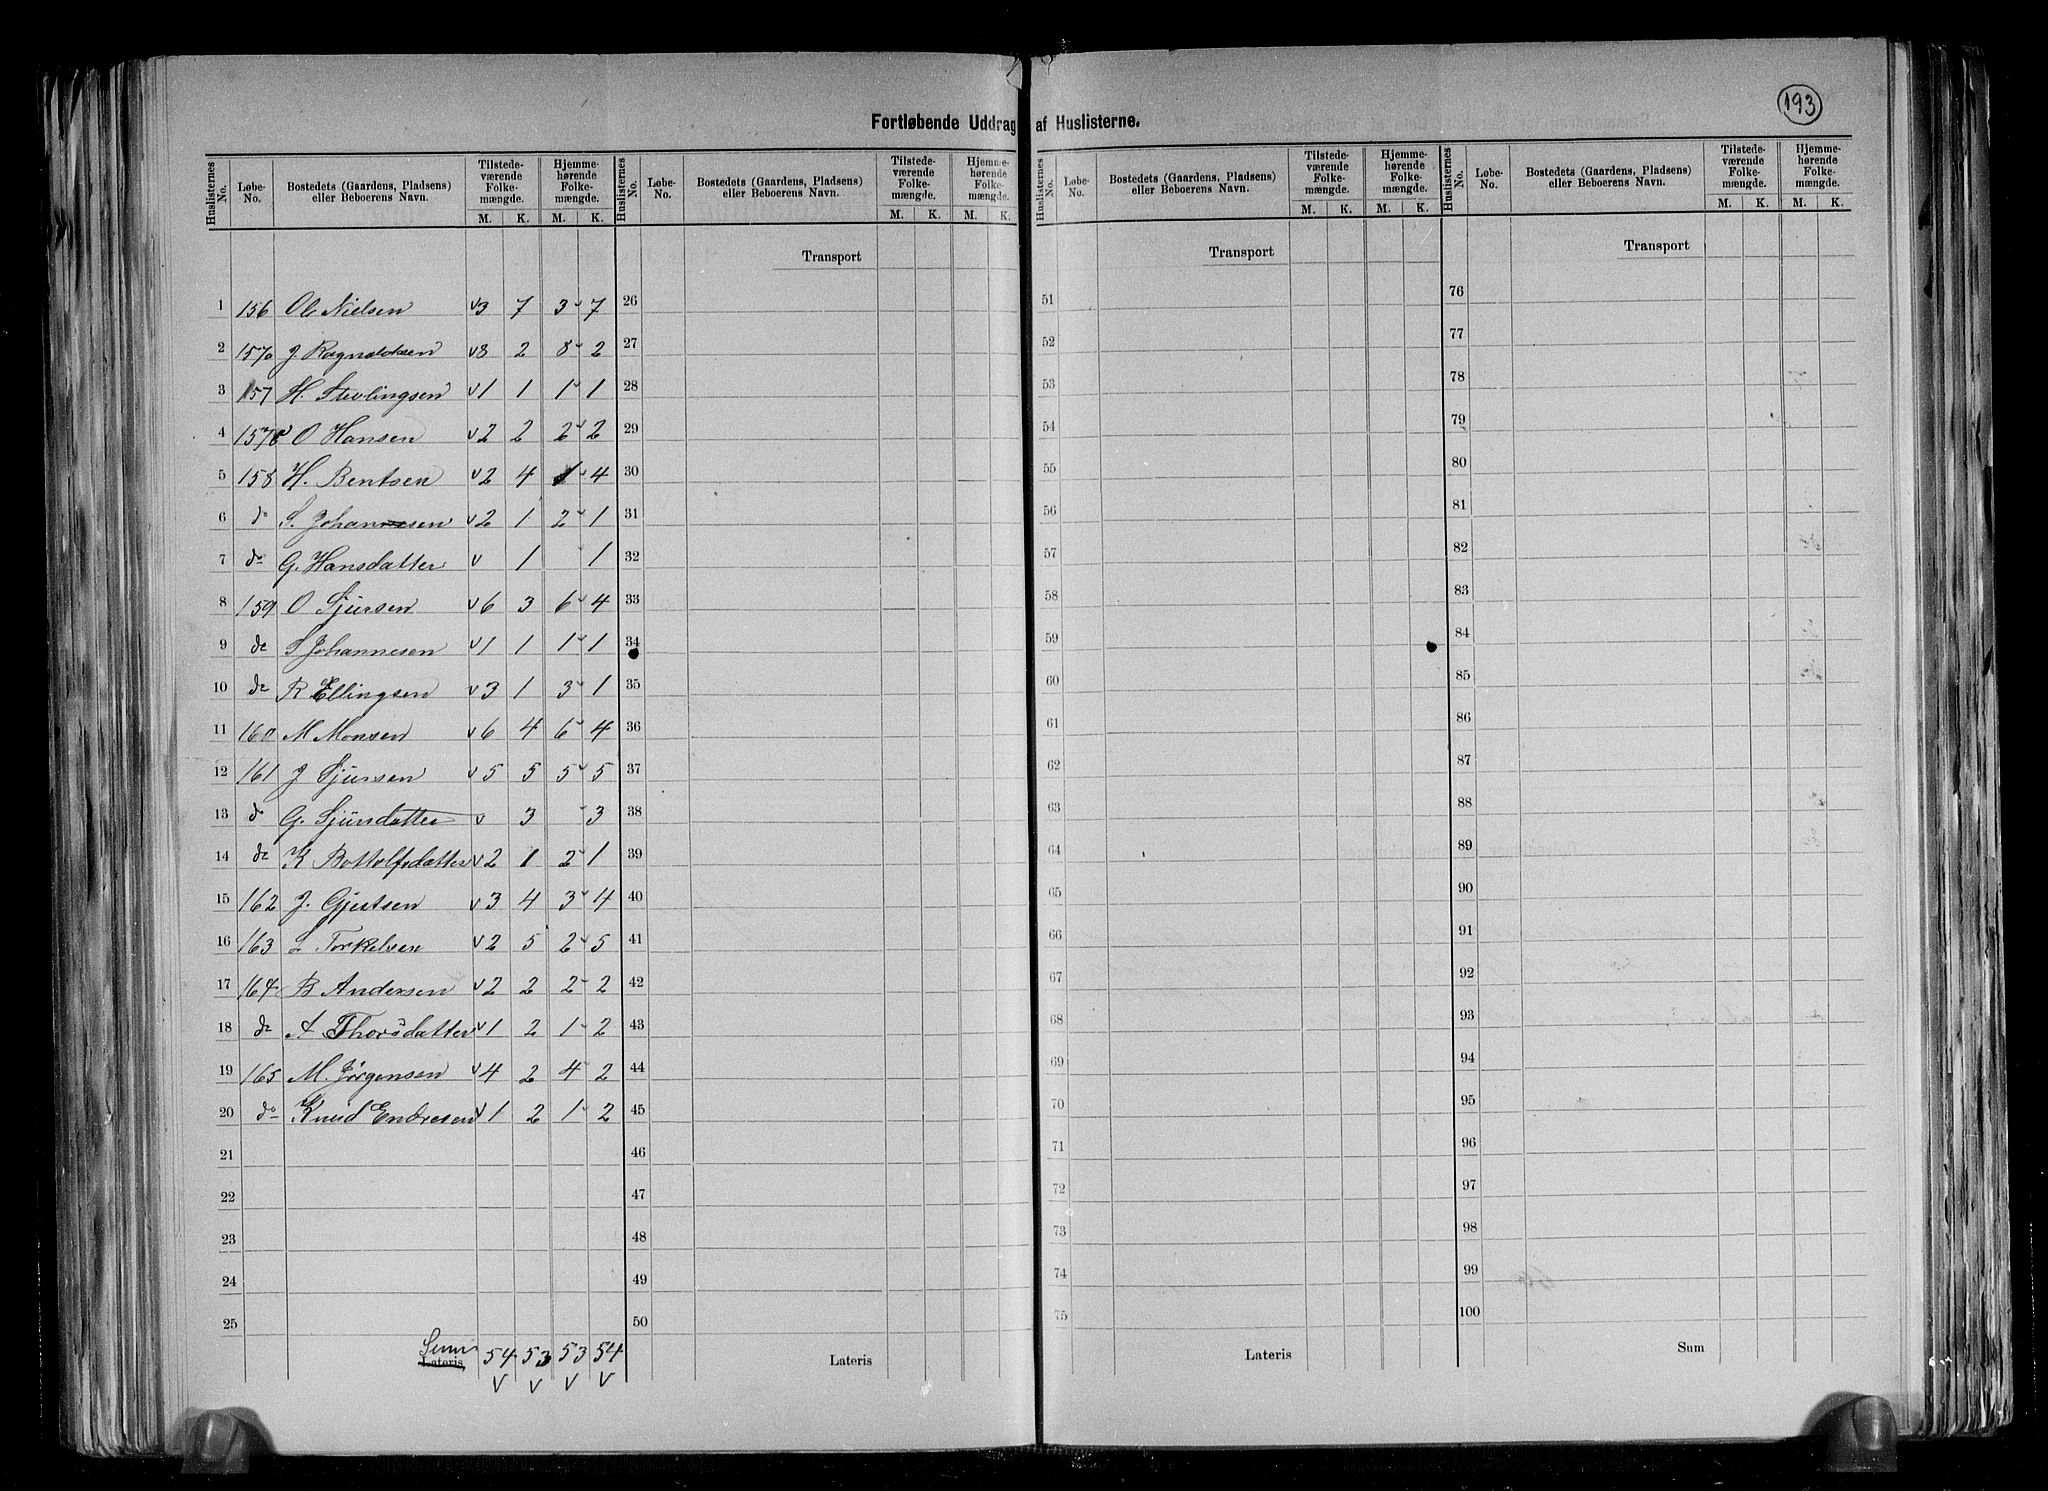 193
Fortløbende Uddrag af Huslisterne.
Huslisternes No. | Løbe-No. | Bostedets (Gaardens, Pladsens) eller Beboerens Navn. | Tilstedeværende Folkemængde. M. K. | Hjemmehørende Folkemængde. M. K.
Huslisternes No. | Løbe-No. | Bostedets (Gaardens, Pladsens) eller Beboerens Navn. | Tilstedeværende Folkemængde. M. K. | Hjemmehørende Folkemængde. M. K.
Huslisternes No. | Løbe-No. | Bostedets (Gaardens, Pladsens) eller Beboerens Navn. | Tilstedeværende Folkemængde. M. K. | Hjemmehørende Folkemængde. M. K.
Huslisternes No. | Løbe-No. | Bostedets (Gaardens, Pladsens) eller Beboerens Navn. | Tilstedeværende Folkemængde. M. K. | Hjemmehørende Folkemængde. M. K.
Transport Transport Transport
1 156 Ole Nielsen v3 7 3 7 26 51 76
2 157a J. Ragnaldsen v8 2 8 2 27 52 77
3 157 H. v1 1 1 1 28 53 78
4 157c O Hansen v2 2 2 2 29 54 79
5 158 H. Bentsen v2 4 1 4 30 55 80
6 do S. Johannesen v2 1 2 1 31 56 81
7 do G. Hansdatter v 1 1 32 57 82
8 159 O Sjursen v6 3 6 4 33 58 83
9 do S Johannesen v1 1 1 1 34 59 84
10 do R Ellingsen v3 1 3 1 35 60 85
11 160 M Monsen v6 4 6 4 36 61 86
12 161 J Sjursen v5 5 5 5 37 62 87
13 do G. Sjursdatter v 3 3 38 63 88
14 do K Bottolfsdatter v2 1 2 1 39 64 89
15 162 J. Gjertsen v3 4 3 4 40 65 90
16 163 L Torkelsen v2 5 2 5 41 66 91
17 164 B Andersen v2 2 2 2 42 67 92
18 do A Thorsdatter v1 2 1 2 43 68 93
19 165 M. Jørgensen v4 2 4 2 44 69 94
20 do Knud Endresen v1 2 1 2 45 70 95
21 46 71 96
22 47 72 97
23 48 73 98
24 49 74 99
25 50 75 100
Sum
Lateris 54 53 53 54 Lateris Lateris Sum
v v v v